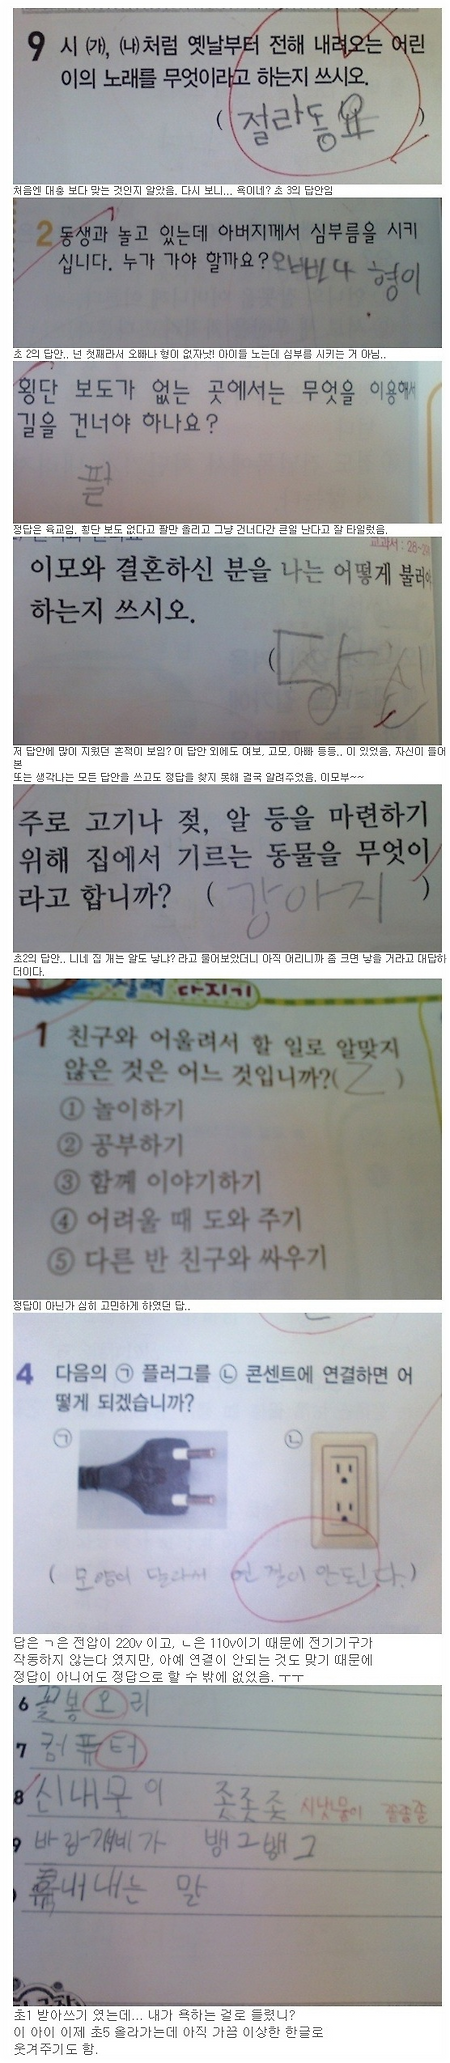 9 시 ㈎, ㈏처럼 옛날부터 전해 내려오는 어린
이의 노래를 무엇이라고 하는지 쓰시오.
( 절라동요 )
처음엔 대충 보다 맞는 것인지 알았음. 다시 보니... 욕이네? 초 3의 답안임
2 동생과 놀고 있는데 아버지께서 심부름을 시키
십니다. 누가 가야 할까요? 오빠나 형이
초 2의 답안.. 넌 첫째라서 오빠나 형이 없자낫! 아이들 노는데 심부름 시키는 거 아님..
횡단 보도가 없는 곳에서는 무엇을 이용해서
길을 건너야 하나요?
팔
정답은 육교임. 횡단 보도 없다고 팔만 올리고 그냥 건너다간 큰일 난다고 잘 타일렀음.
교과서 : 28-29
이모와 결혼하신 분을 나는 어떻게 불러야
하는지 쓰시오.
( 당신
저 답안에 많이 지웠던 흔적이 보임? 이 답안 외에도 여보, 고모, 아빠 등등.. 이 있었음. 자신이 들어
본
또는 생각나는 모든 답안을 쓰고도 정답을 찾지 못해 결국 알려주었음. 이모부~~
주로 고기나 젖, 알 등을 마련하기
위해 집에서 기르는 동물을 무엇이
라고 합니까? ( 강아지 )
초2의 답안.. 니네 집 개는 알도 낳냐? 라고 물어보았더니 아직 어리니까 좀 크면 낳을 거라고 대답하
더이다.
다지기
1 친구와 어울려서 할 일로 알맞지
않은 것은 어느 것입니까?( 2 )
① 놀이하기
② 공부하기
③ 함께 이야기하기
④ 어려울 때 도와 주기
⑤ 다른 반 친구와 싸우기
정답이 아닌가 심히 고민하게 하였던 답..
4 다음의 ㉠ 플러그를 ㉡ 콘센트에 연결하면 어
떻게 되겠습니까?
㉠ ㉡
( 모양이 달라서 연결이 안된다.)
답은 ㄱ은 전압이 220v 이고, ㄴ은 110v이기 때문에 전기기구가
작동하지 않는다 였지만, 아예 연결이 안되는 것도 맞기 때문에
정답이 아니어도 정답으로 할 수 밖에 없었음. ㅜㅜ
6 꽃봉오리
7 컴퓨터
8 신내물이 좃좃좃 시냇물이 졸졸졸
9 바람개비가 뱅그뱅그
흉내내는 말
초1 받아쓰기 였는데... 내가 욕하는 걸로 들렸니?
이 아이 이제 초5 올라가는데 아직 가끔 이상한 한글로
웃겨주기도 함.